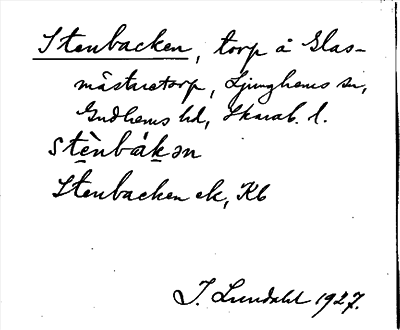 Stenbacken, torp å Glas-
mästaretorp, Ljunghems sn,
Gudhems hd, Skarab. l.
stènbák̲ən
Stenbacken ek, Kb
J. Lundahl 1927.